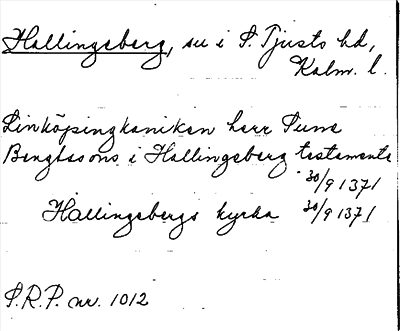 Hallingeberg, sn i S. Tjusts hd,
Kalm. l.
Linköpingkaniken herr Sune
Bengtssons i Hallingeberg testamente
30/9 1371
Hallingebergs kyrka 30/9 1371
S.R.P. nr. 1012